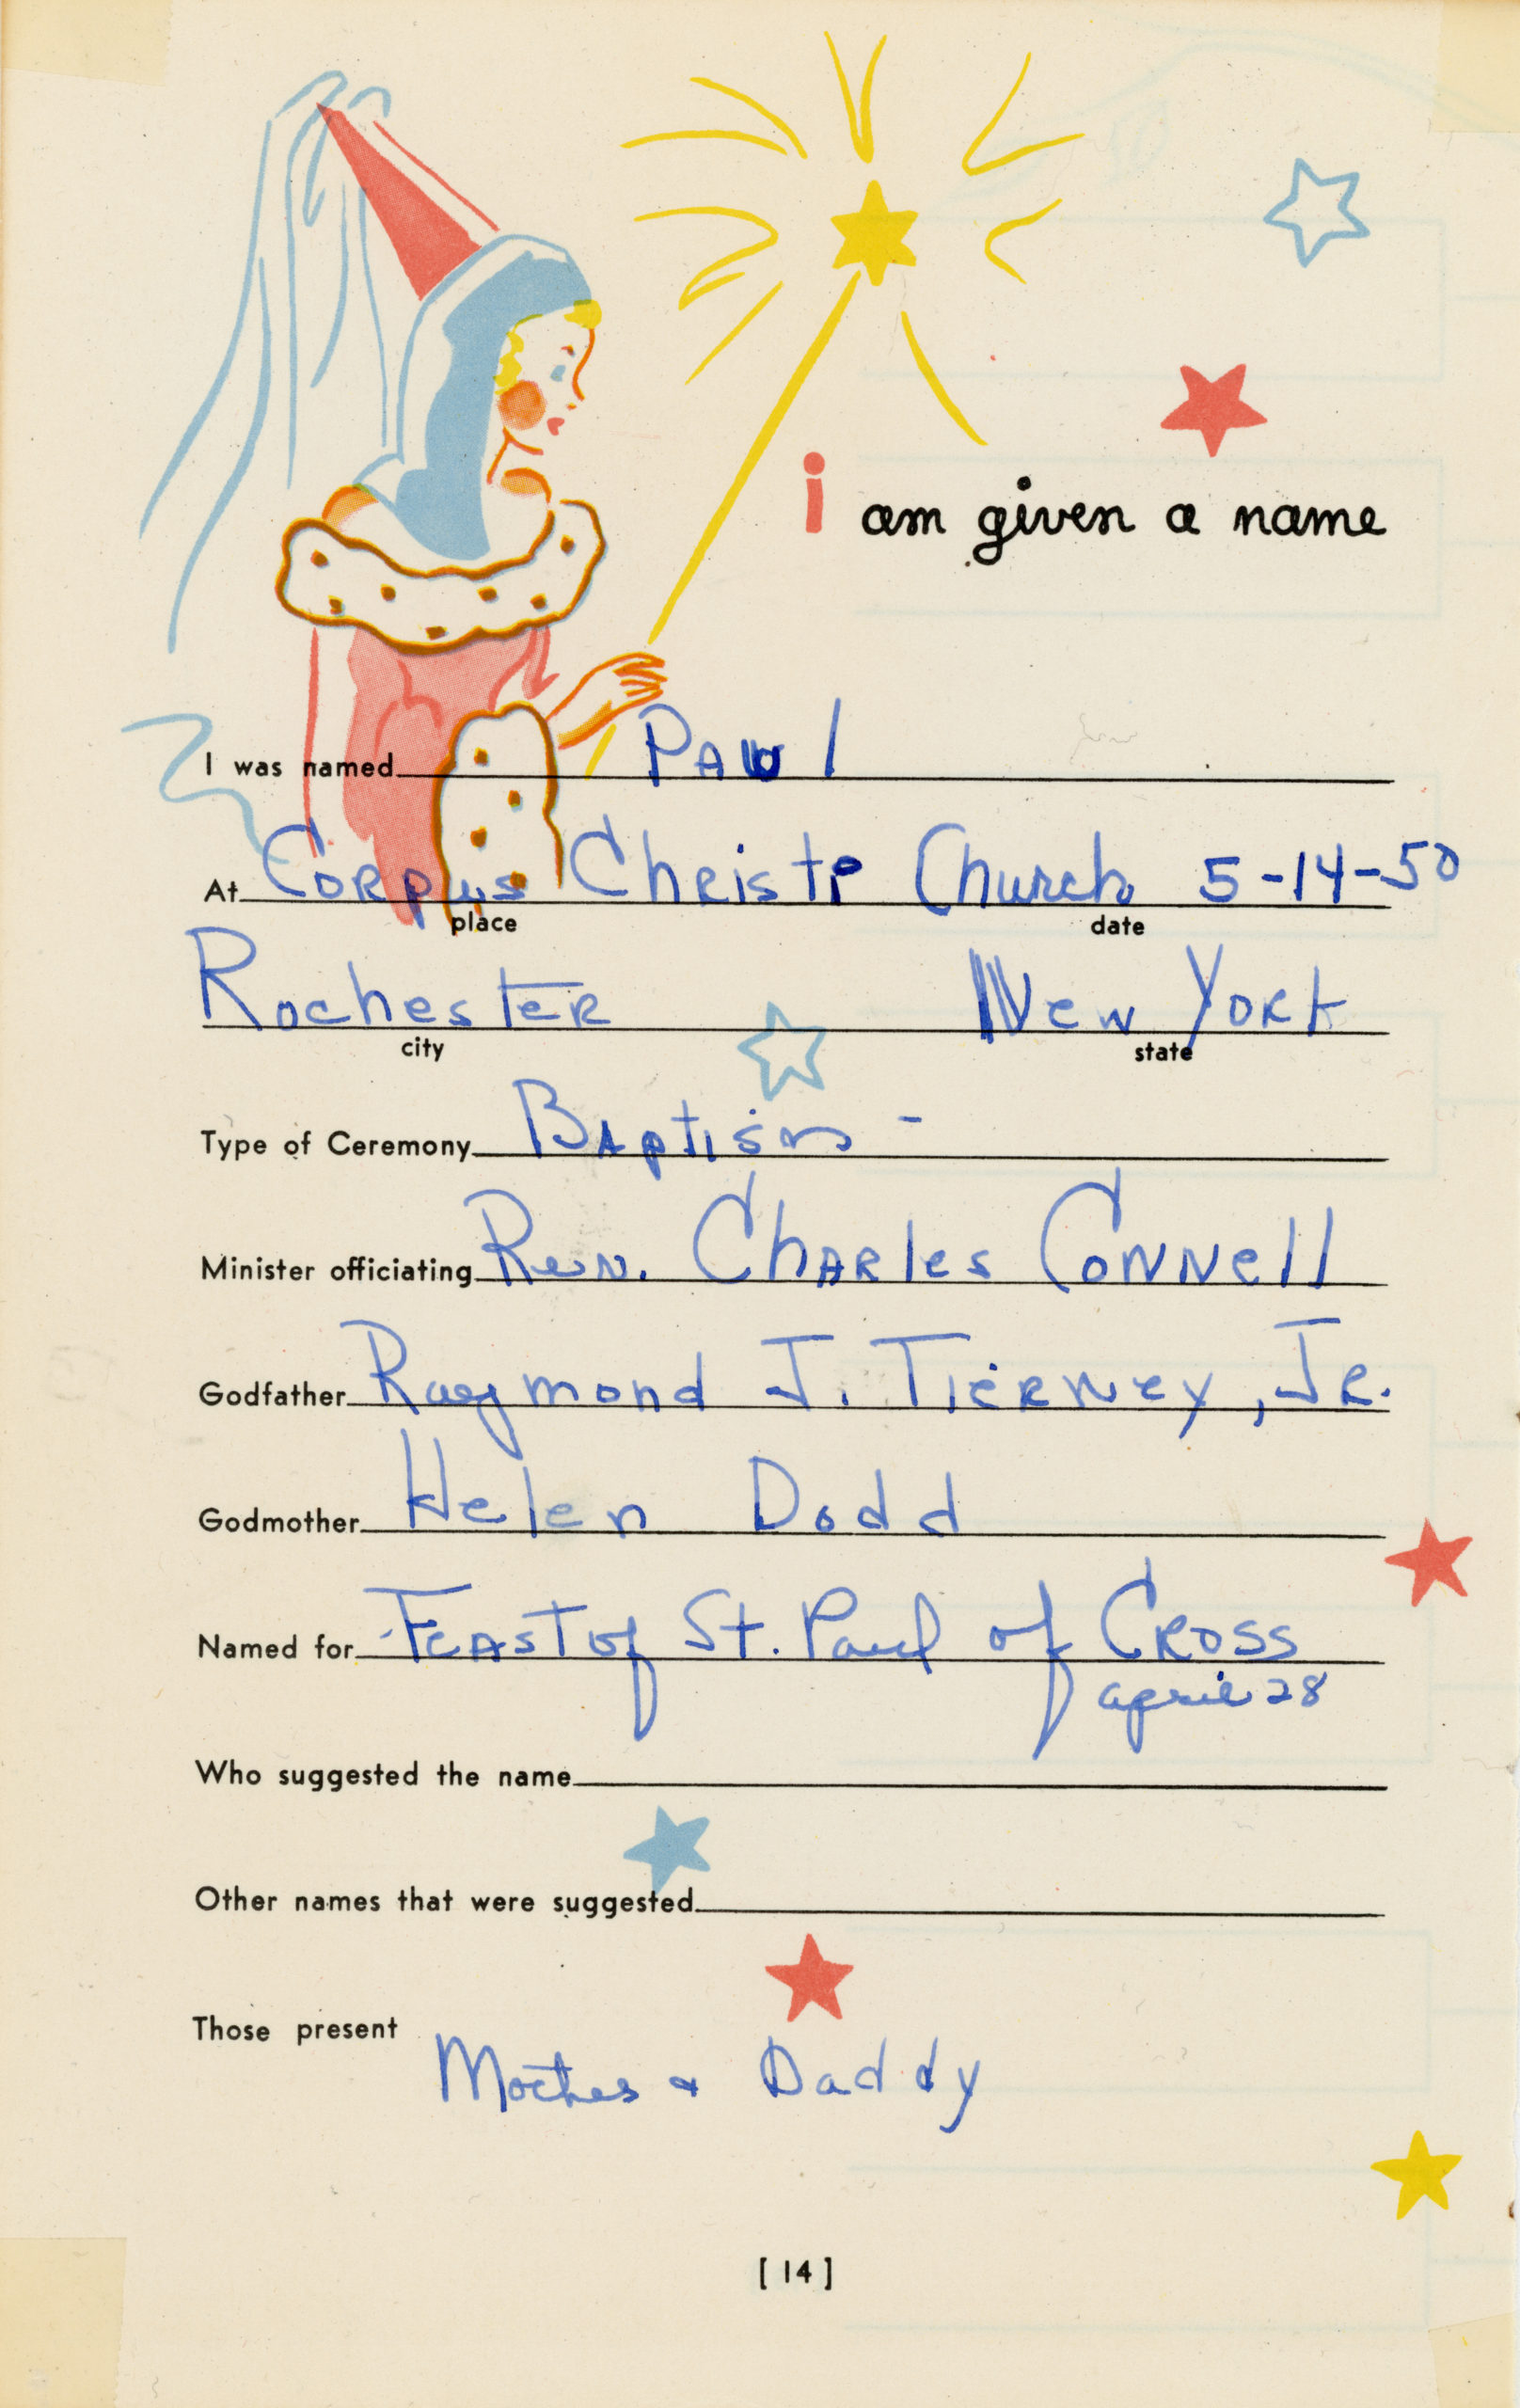 i am given a name
I was named Paul
At Corpus Christi Church 5-14-50
place date
Rochester New York
city state
Type of Ceremony Baptism -
Minister officiating Rev. Charles Connell
Godfather Raymond J. Tierney, Jr.
Godmother Helen Dodd
Named for Feast of St. Paul of Cross
april 28
Who suggested the name
Other names that were suggested
Those present
Mother & Daddy
[14]